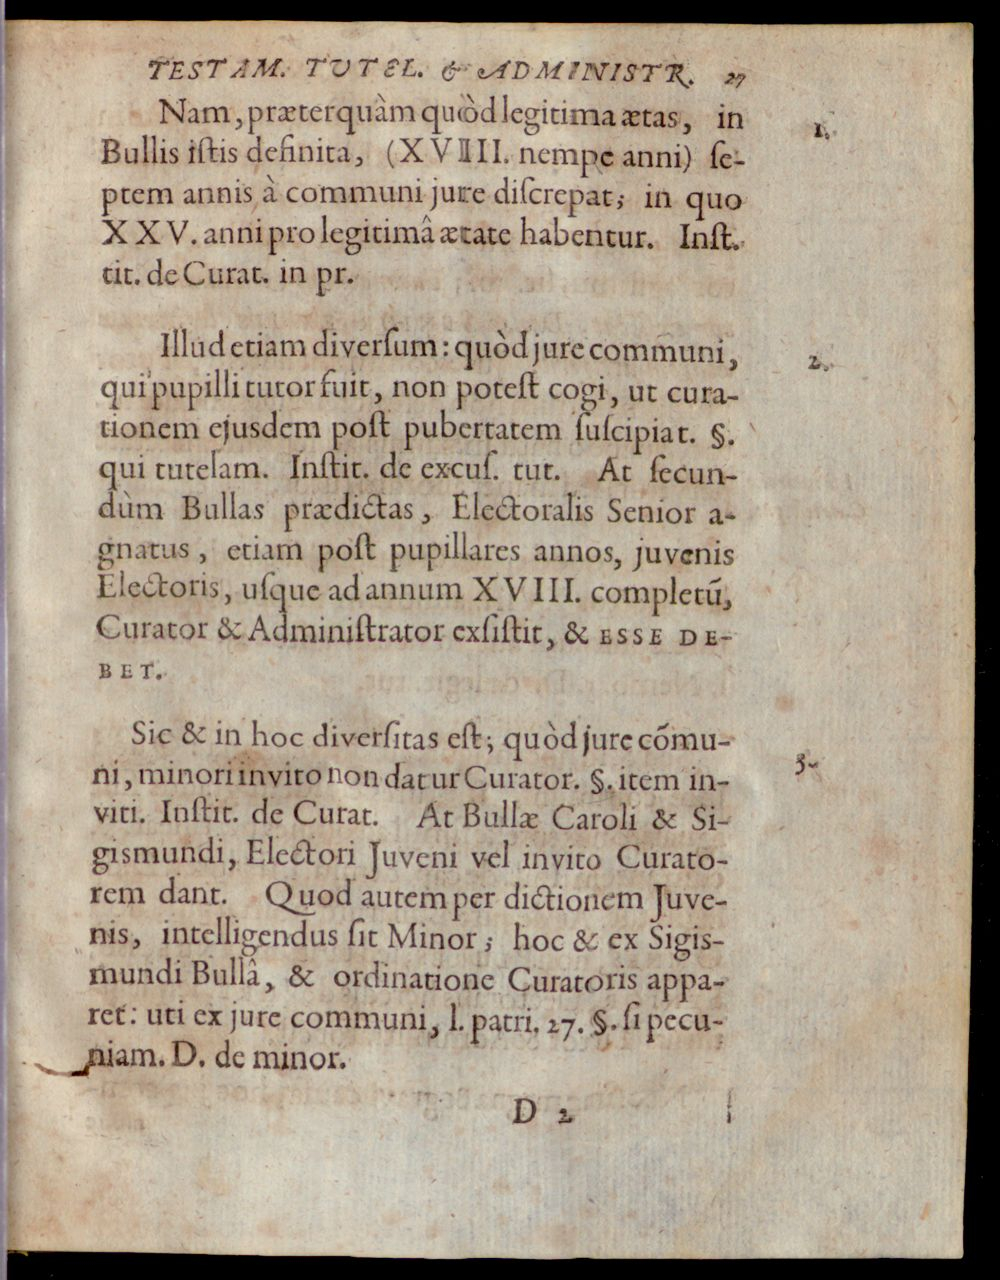 TESTAM. TUTEL. & ADMINISTR. 27
Nam, præterquàm quòd legitima ætas, in 1.
Bullis iſtis definita, (XVIIII. nempe anni) ſe-
ptem annis à communi jure diſcrepat; in quo
XXV. anni pro legitimâ ætate habentur. Inſt.
tit. de Curat. in pr.
Illud etiam diverſum: quòd jure communi, 2.
qui pupilli tutor fuit, non poteſt cogi, ut cura-
tionem ejusdem poſt pubertatem ſuſcipiat. §.
qui tutelam. Inſtit. de excuſ. tut. At ſecun-
dùm Bullas prædictas, Electoralis Senior a-
gnatus, etiam poſt pupillares annos, juvenis
Electoris, uſque ad annum XVIII. completū,
Curator & Adminiſtrator exſiſtit, & ESSE DE-
BET.
Sic & in hoc diverſitas eſt; quòd jure cõmu-
ni, minori invito non datur Curator. §. item in- 3.
viti. Inſtit. de Curat. At Bullæ Caroli & Si-
gismundi, Electori Juveni vel invito Curato-
rem dant. Quod autem per dictionem Juve-
nis, intelligendus ſit Minor; hoc & ex Sigis-
mundi Bullâ, & ordinatione Curatoris appa-
ret: uti ex jure communi, l. patri. 27. §. ſi pecu-
niam. D. de minor.
D 2